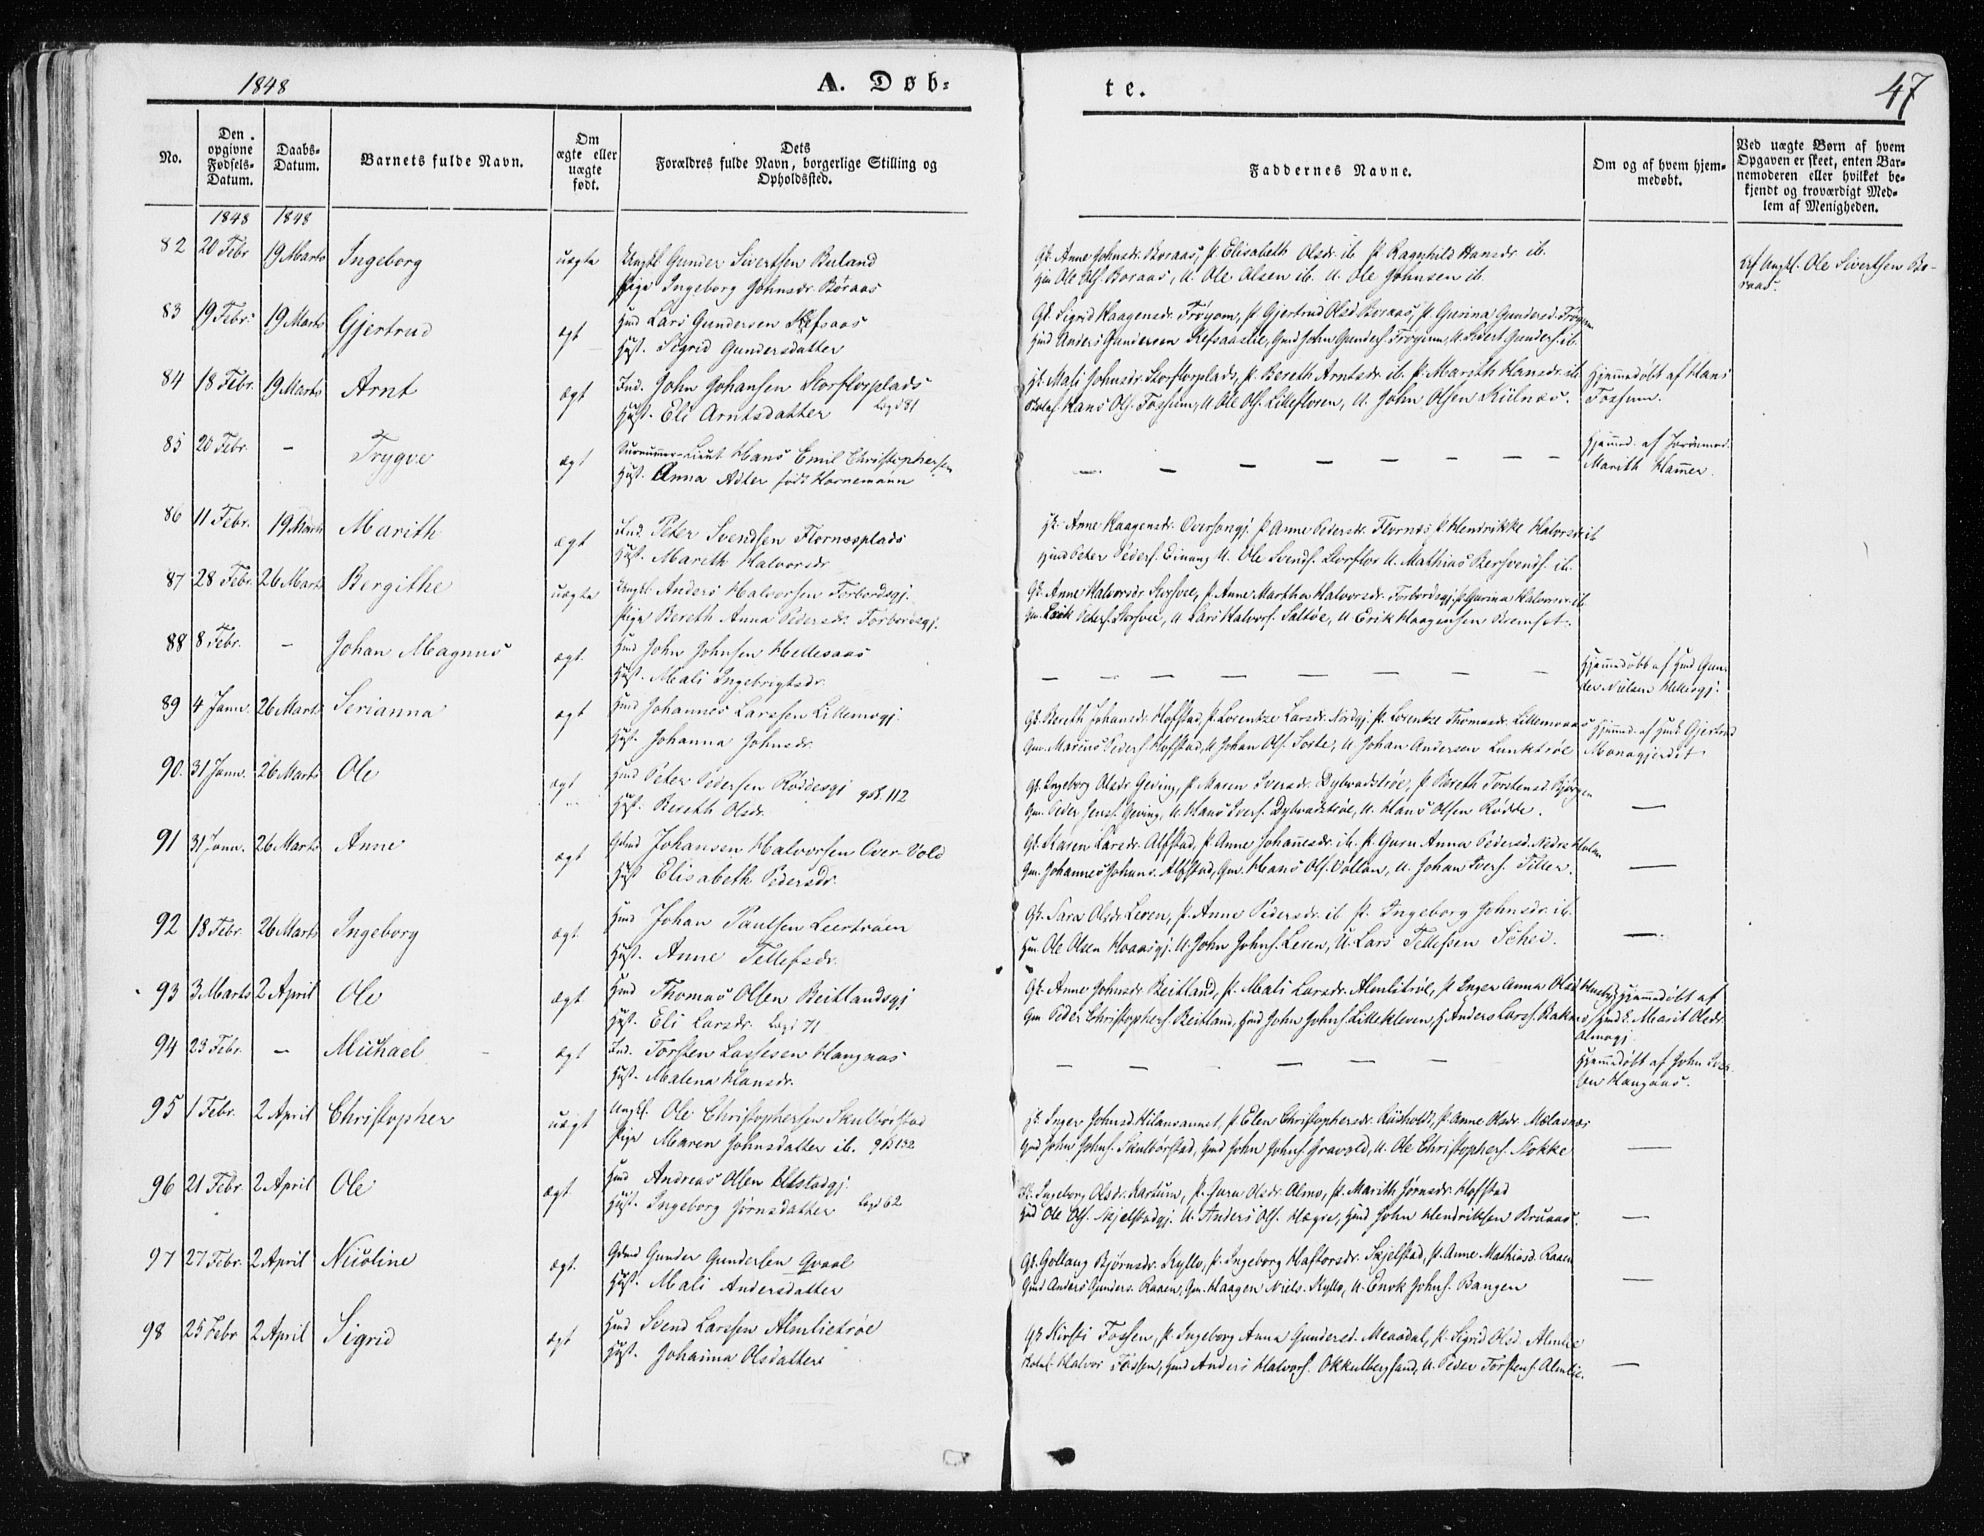 1848
A. Døb-
te.
47
No.
Den opgivne Fødsels-Datum.
Daabs-Datum.
Barnets fulde Navn.
Om ægte eller uægte født.
Dets Forældres fulde Navn, borgerlige Stilling og Opholdssted.
Faddernes Navne.
Om og af hvem hjemmedøbt.
Ved uægte Børn af hvem Opgaven er skeet, enten Barnemoderen eller hvilket bekjendt og troværdigt Medlem af Menigheden.
1848 1848
82 20 Febr 19 Marts Ingeborg uægte Ungkl Gunder Sivertsen
Pige Ingeborg Johnsdr. Børaas
Gk. Anne Johnsdr. Boraas, p. Elisabeth Olsdr. ib p. Ragnhild Hansdr ib.
Ole Ols. Boraas, U. Ole Olsen ib. U. Ole Johnsen ib.
Ungkl. Ole Sivertsen Bo-
raas.
83 19 Febr. 19 Marts Gjertrud ægt Hmd Lars Gundersen Refsaas
Hust. Sigrid Gundersdatter
Gk. Sigrid Haagensdr. Trøyom, p. Gjertrud Olsd Boraas, p. Gurina Gundersd.
Anders Gundersen Refsaaslie, Gmd John Gunders. U. Sivert Gunders. ib.
84 18 Febr. 19 Marts Arnt ægt Ind. John Johansen Storflorplads
Hust. Eli Arntsdatter
Mali Johnsdr. Storflorplads, p. Bereth Arntsdr. ib p. Marith Hansdr. ib
Hans Ols. Fossum, U Ole Ols. Lillefloren, U. John Olsen
Hjemmedøbt af Hans
Fossum.
85 20 Febr. – Trygve ægt Lieut Hans Emil Christophersen
Hust. Anna Adler født Hornemann
— — — — — — — —
Hjemmed. af Jordemod.
Marith Hammer.
86 11 Febr. 19 Marts Marith ægt Ind. Peter Svendsen Flornesplads
Hust. Mareth Halvorsdr
Anne Haagensdr. p Anne Pedersdr. Flornes p. Hendrikke Halvorsd ib
Peter Peders. Einang U. Ole Svends. Storflor U. Mathias ib.
87 28 Febr. 26 Marts Bergithe uægte Ungkl. Anders Halvorsen Forbordsgj.
Pige Bereth Anna Pedersdr. Forbordsgj.
Gk. Anne Halvorsdr Storsvee, p. Anne Martha Halvorsdr. Forbordsgj. p. Gurina Halvorsdr ib
Gm. Erik Peders. Storsvee, U Lars Halvors. Saltøe, U Erik Haagensen Bremset.
88 8 Febr. – Johan Magnus ægt. Hmd John Johnsen Hellesaas
Hust. Mali Ingebrigtsdr.
— — — — — — — —
Hjemmedøbt af Hmd Gun-
der Nielsen
89 4 Janr. 26 Marts Serianna ægt Hmd Johannes Larssen Lillemogj.
Hust. Johanna Johnsdr.
Gk. Bereth Johansdr. Hofstad, p. Lorentze Larsdr. p. Lorentze Thomasdr.
Gm. Marius Peders. Hofstad, U Johan Ols. U. Johan Andersen
Hjemmed. af Gjertrud
90. 31 Janr. 26 Marts Ole ægt Hmd Peter Pedersen Røddesgj 112
Hust. Bereth Olsdr.
Gk. Ingeborg Olsdr Geving, p. Maren Iversdr. Dybvadstrøe, p. Bereth Torstensd. Bjørgen
Gm. Peder Jens. Geving, U. Hans Ivers. Dybvadstrøe, U. Hans Olsen Rødde. —
91 31 Janr. 26 Marts Anne ægt Gdmd Johansen Halvorsen Over-Vold
Hust Elisabeth Pedersdr.
Gk. Maren Larsdr. Alfstad, p. Anne Johannesdr. ib. p. Guru Anna Pedersd. Nedre
Gm. Johannes Johans. Alfstad, Gm. Hans Ols. Vollan, U. Johan Ivers. Teller. —
92 18 Febr. 26 Marts Ingeborg ægt. Hmd Johan Paulsen Leertrøen
Hust. Anne Tellefsdr.
Gk. Sara Olsdr. Leren, p. Anne Pedersdr. ib p. Ingeborg Johnsdr. ib.
Ole Olsen U. John Johns. Leren, U. Lars Tellefsen Schei. —
93 3 Marts 2 April Ole ægt Hmd Thomas Olsen Beitlandsgj
Hust. Eli Larsdr. 71
Gk. Anne Johnsdr. Beitland, p. Mali Larsdr. Almlitrøe, p Inger Anna Olsd
Gm Peder Christophers. Beitland, Hmd John Johns. Lillekleven, Anders Larss.
Hjemmedøbt af
Marit Olsdr.
Almogj.
94 23 Febr. – Michael ægt Ind. Torsten Lassesen Haugnæs
Hust. Malena Hansdr.
— — — — — —
Hjemmedøbt af John
95 1 Febr. 2 April Christopher uægt Ungkl. Ole Christophersen Skulbørstad
Pige Maren Johnsdatter ib.
Inger Johnsd. p Elen Christophersdr. p. Anne Olsdr.
Gmd John Johns. Skulbørstad, Gmd John Johns. U. Ole Christophers. —
96 21 Febr. 2 April Ole ægt Hmd Andreas Olsen
Hust. Ingeborg Jørnsdatter 62
Ingeborg Olsdr. p. Olsdr. Almo, p. Marith Jørnsdr. Hofstad
Hmd Ole Ols. Skjelstadgj. U. Anders Ols. Hægre, Hmd John Hendriksen Bruaas. —
97 27 Febr. 2 April Nicoline ægt. Gdmd Gunder Gundersen Qvaal
Hust. Mali Andersdatter
Gk. Gollaug Bjørnsdr. Kyllo, p. Ingeborg Haftorsdr. Skjelstad, p. Anne Mathiasd. Raaen
Gmd Anders Gunders. Raaen, Gm. Haagen Niels. Kyllo, U. Enok Johns. Bangen —
98 25 Febr 2 April Sigrid ægt Hmd Svend Larssen Almlietrøe
Hust. Johanna Olsdatter
Gk Kirsti Fossen, p. Ingeborg Anna Gundersd. Meaadal, p. Sigrid Olsd. Almlie
Halvor Fossen, Gmd Anders Halvors. U. Peder Torstens. Almlie. —